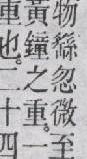 物繇忽微至
黃鐘之重。一
重也。二十四